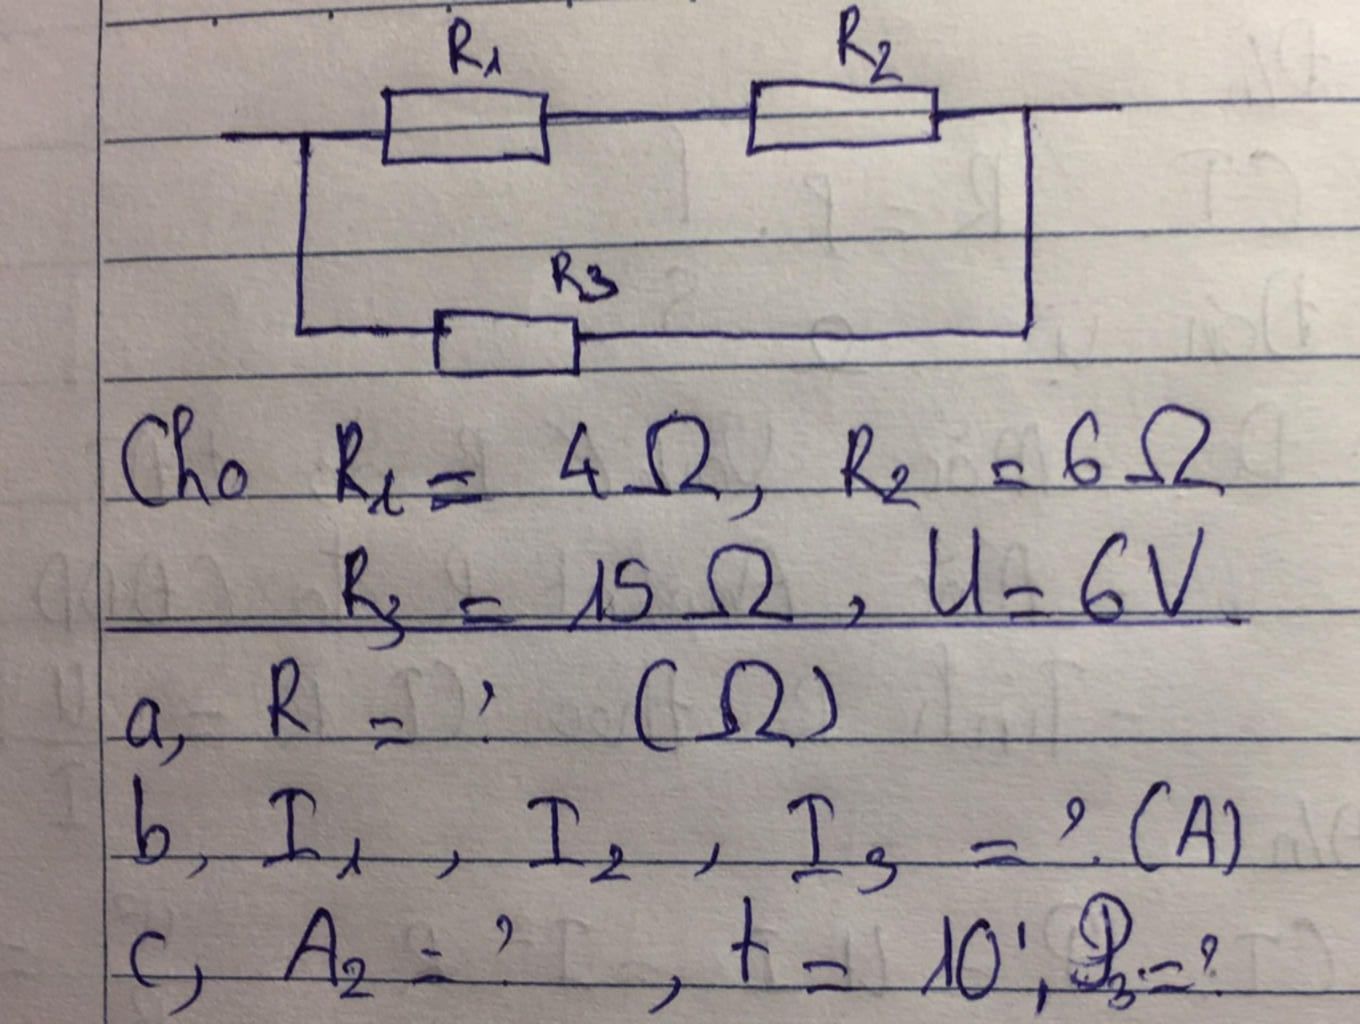 R1 R2
R3
Cho R1 = 4 Ω, R2 = 6 Ω
R3 = 15 Ω, U = 6V
a, R = ? (Ω)
b, I1, I2, I3 = ? (A)
c, A2 = ?, t = 10', P3 = ?